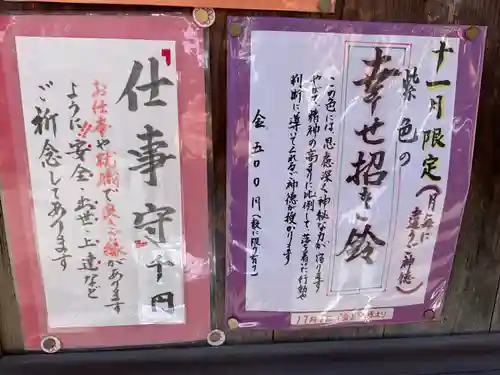 十一月限定(月毎に違う御神徳)
紫色の
幸せ招き鈴
この色には、思慮深く神秘な力が宿ります
やがて精神の高まりに比例して、落ち着いた行動や
判断に導いてくれる御神徳が授かります
金 五〇〇円(数に限り有り)
「仕事守」千円
お仕事や就職で良い御縁があります
ように!!安全・出世・上達など
ご祈念してあります